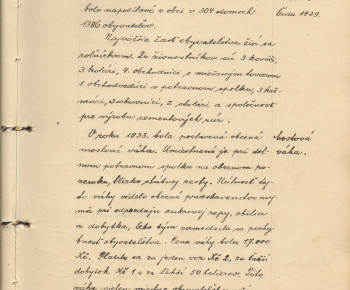 bolo napočítané v obci v 304 domoch
ľudu 1929.
1386 obyvateľov.
Najväčšia časť obyvateľstva živí sa
roľníctvom. Zo živnostníkov sú 3 kováči,
3 kolári, 4 obchodníci s miešaným tovarom
1 obchodvedúci v potravnom spolku, 3 krč-
mári, 2 stolári a spoločnosť
pre výrobu cementových rúr.
V roku 1933. bola postavená obecná
Mostová
mostová váha. Umiestnená je pri dol-
váha.
nom potravnom spolku na obecnom po-
zemku, blízko štátnej cesty. Nútnosť tej-
to váhy videlo obecné predstavenstvo naj-
mä pri odpredaju cukrovej repy, obilia
a dobytka, lebo tým zamedzila sa pochy-
bnosť obyvateľstva. Cena váhy bola 17.000
Kč. Platilo sa za jeden voz Kč 2, za ťažší
dobytok Kč 1 a za ľahší 50 halierov. Túto
váhu nielen miestne